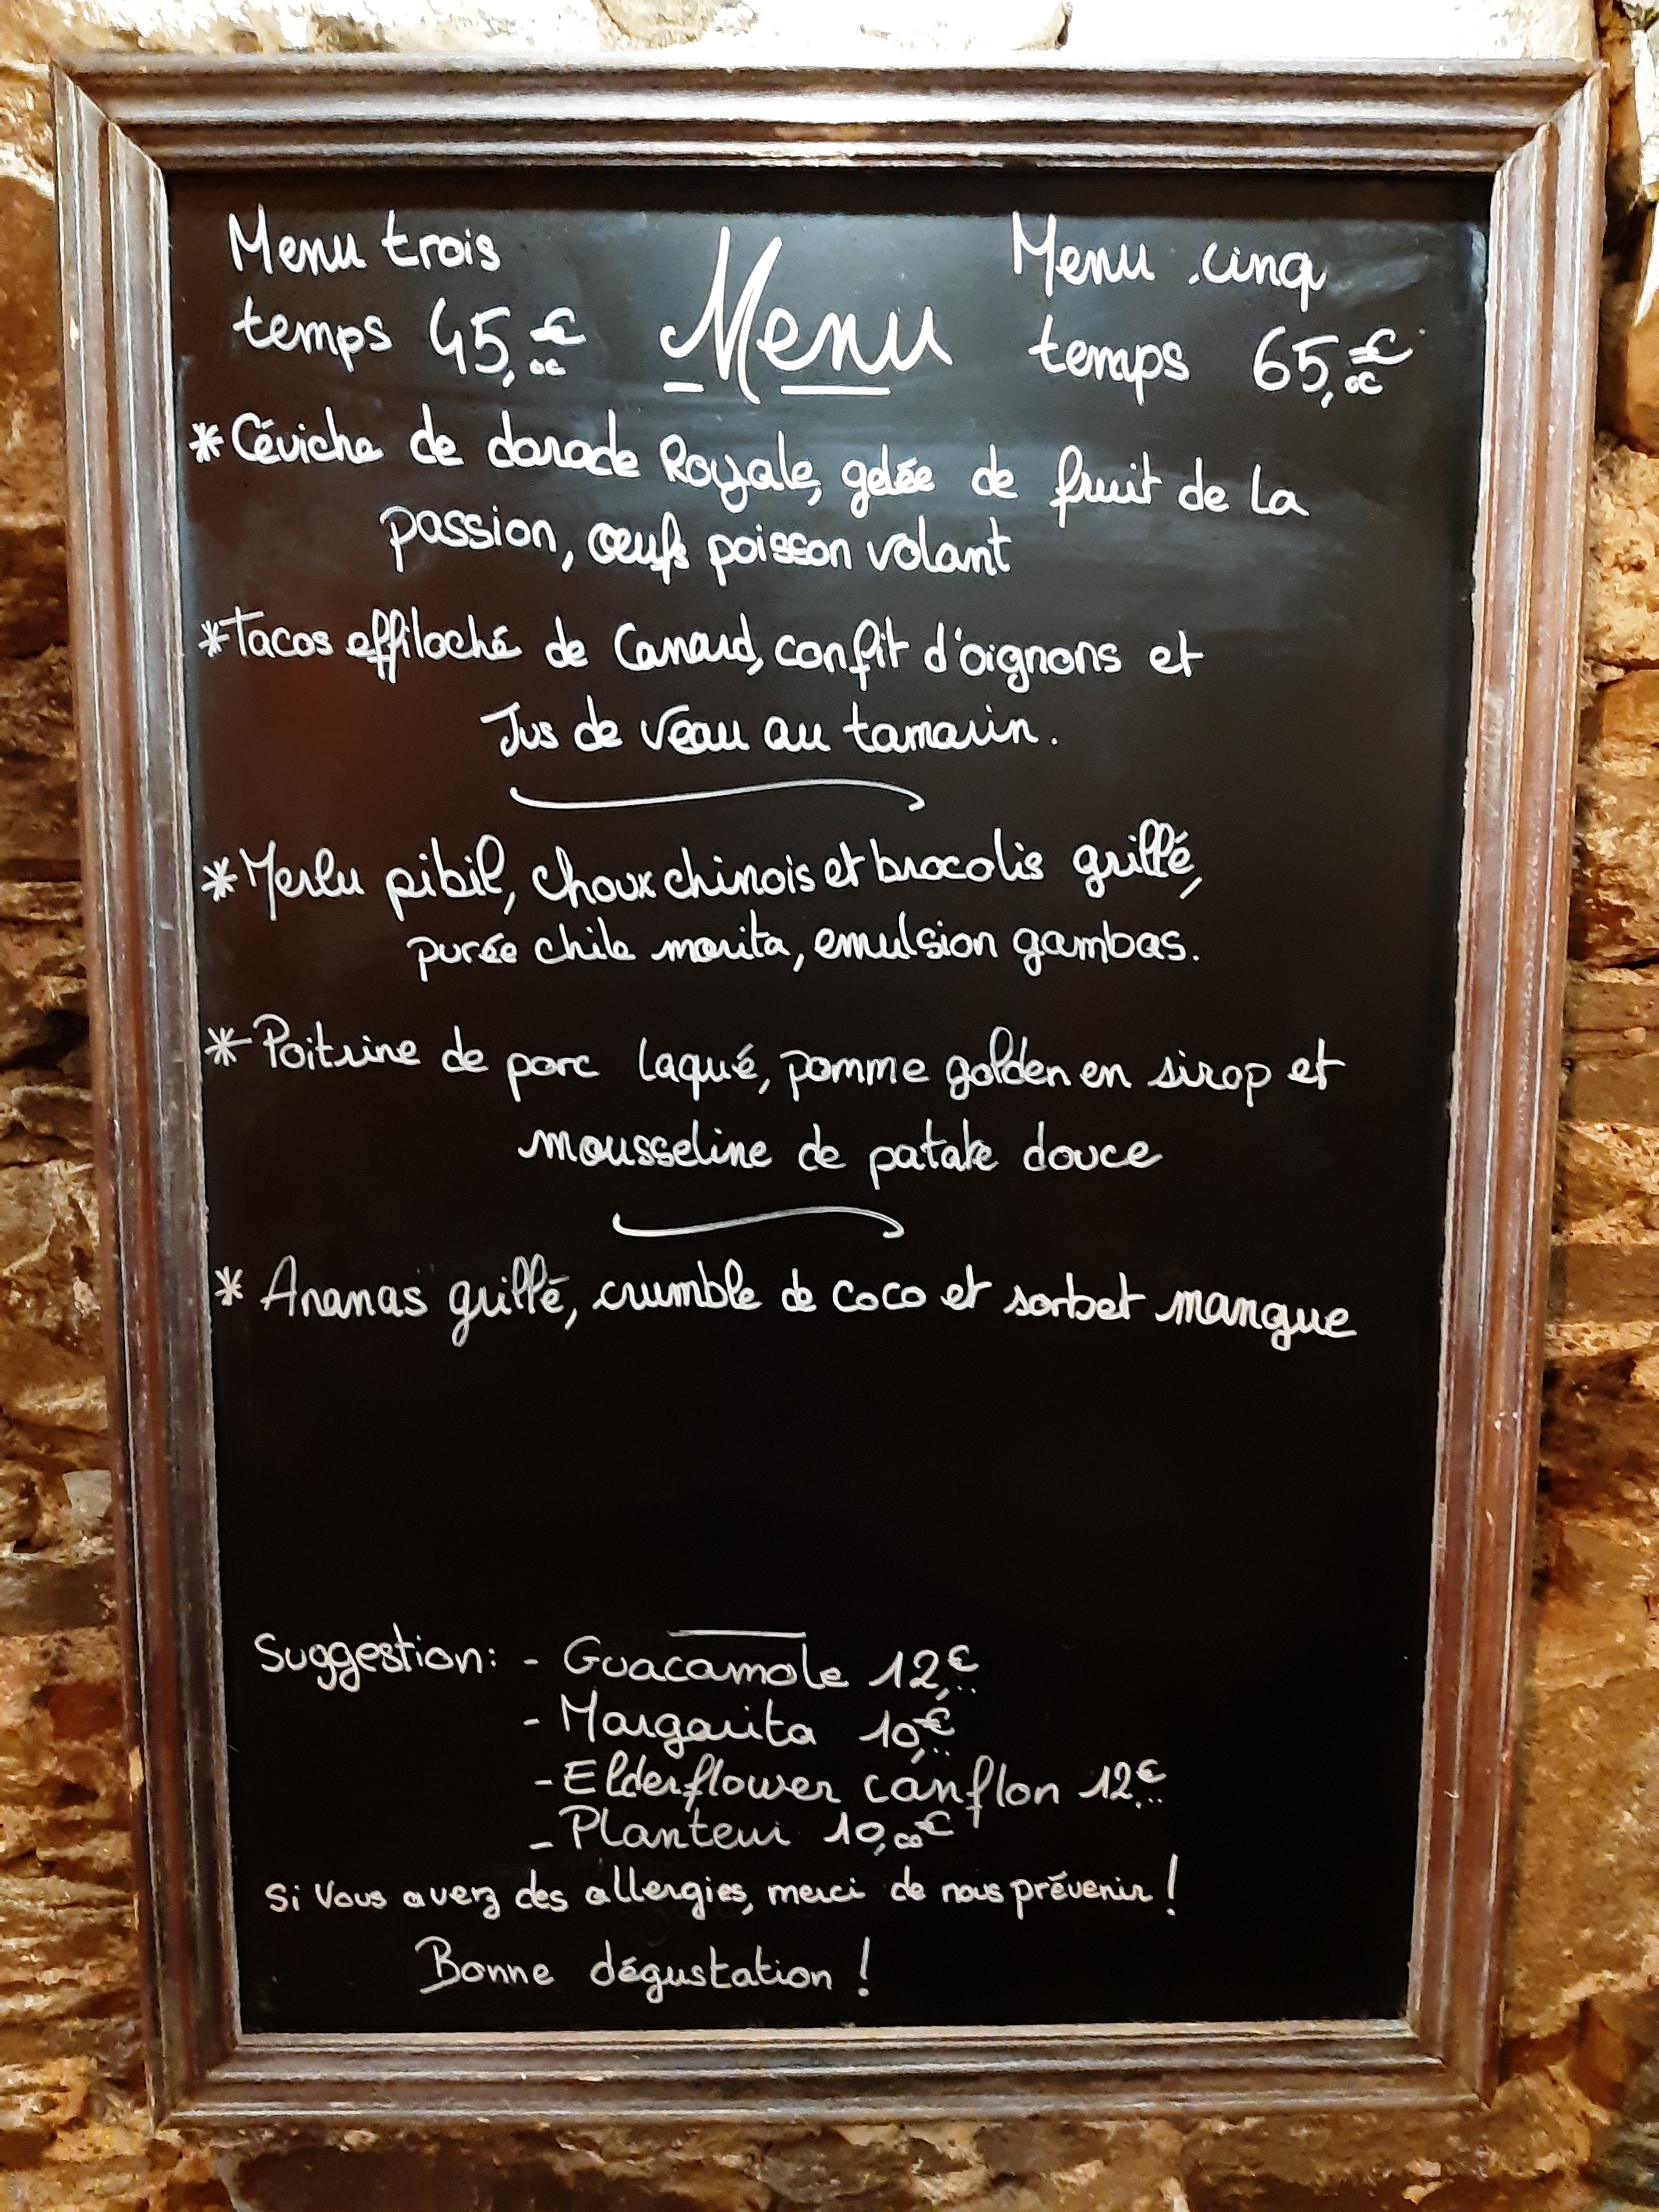 Menu trois
temps 45,00€
Menu
Menu cinq
temps 65,00€
*Céviche de darade Royale, gelée de fruit de la
passion, œufs poisson volant
*Tacos effiloché de Canard, confit d'oignons et
Jus de Veau au tamarin.
*Merlu pibil, choux chinois et brocolis grillé,
purée chile morita, emulsion gambas.
*Poitrine de porc laqué, pomme golden en sirop et
mousseline de patate douce
* Ananas grillé, crumble de coco et sorbet mangue
Suggestion: - Guacamole 12,..€
- Margarita 10,..€
- Elderflower 12,..€
- Planteur 10,00€
Si Vous averz des allergies, merci de nous prévenir !
Bonne dégustation !